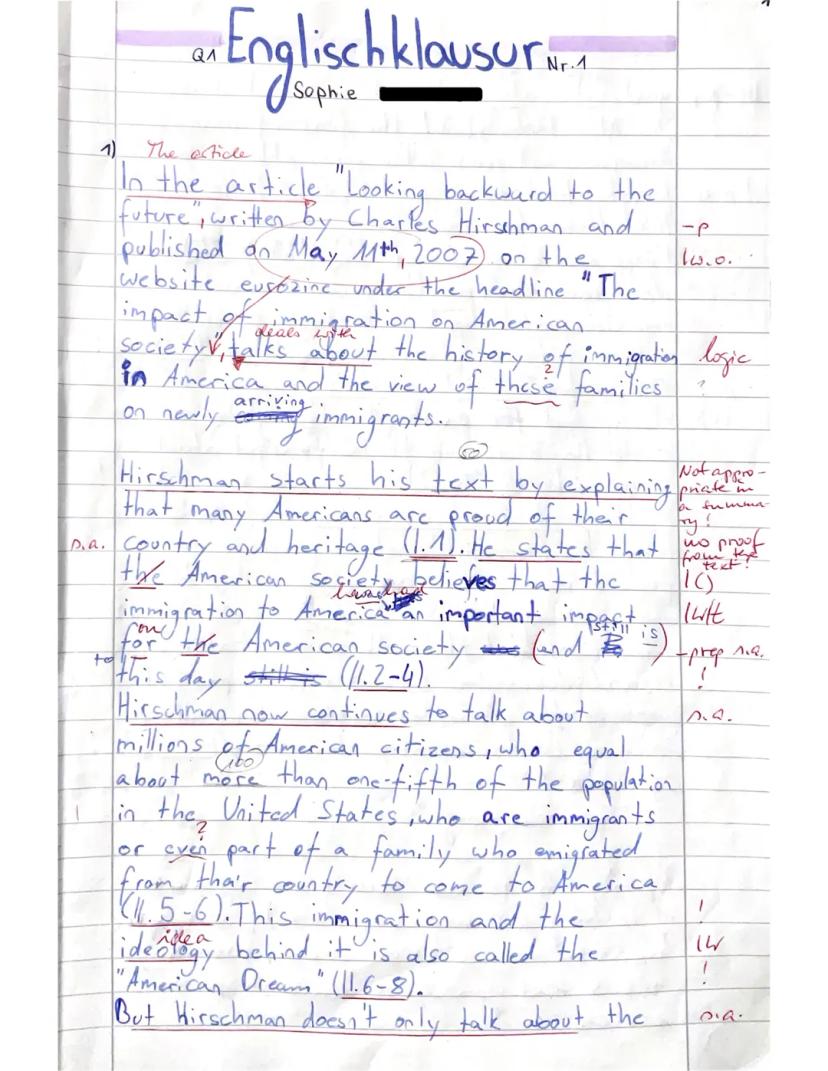 1
Q1 Englischklausur Nr.1
Sophie
1) The article
In the article "Looking backwurd to the
future", written by Charles Hirschman and -P
published on May 11th, 2007 on the 1w.o.
website eurozine under the headline "The
impact of immigration on American
deals with
society", talks about the history of immigration logic
?
in America and the view of these families ?
arriving
on newly coming immigrants.
50
Hirschman starts his text by explaining Not appro-
priate in
that many Americans are proud of their a summa-
ry!
n.a. country and heritage (l.1). He states that no proof
from the
text!
the American society believes that the 1()
has had
immigration to America an important impact 1wt
on still is
for the American society (and is) -prep n.a.
to this day still is (ll.2-4). !
Hirschman now continues to talk about n.a.
millions of American citizens, who equal
100
about more than one-fifth of the population
1 in the United States, who are immigrants
?
or even part of a family who emigrated
from thair country to come to America
(ll.5-6). This immigration and the !
idea
ideology behind it is also called the 1w
"American Dream" (ll.6-8). !
But Hirschman doesn't only talk about the n.a.